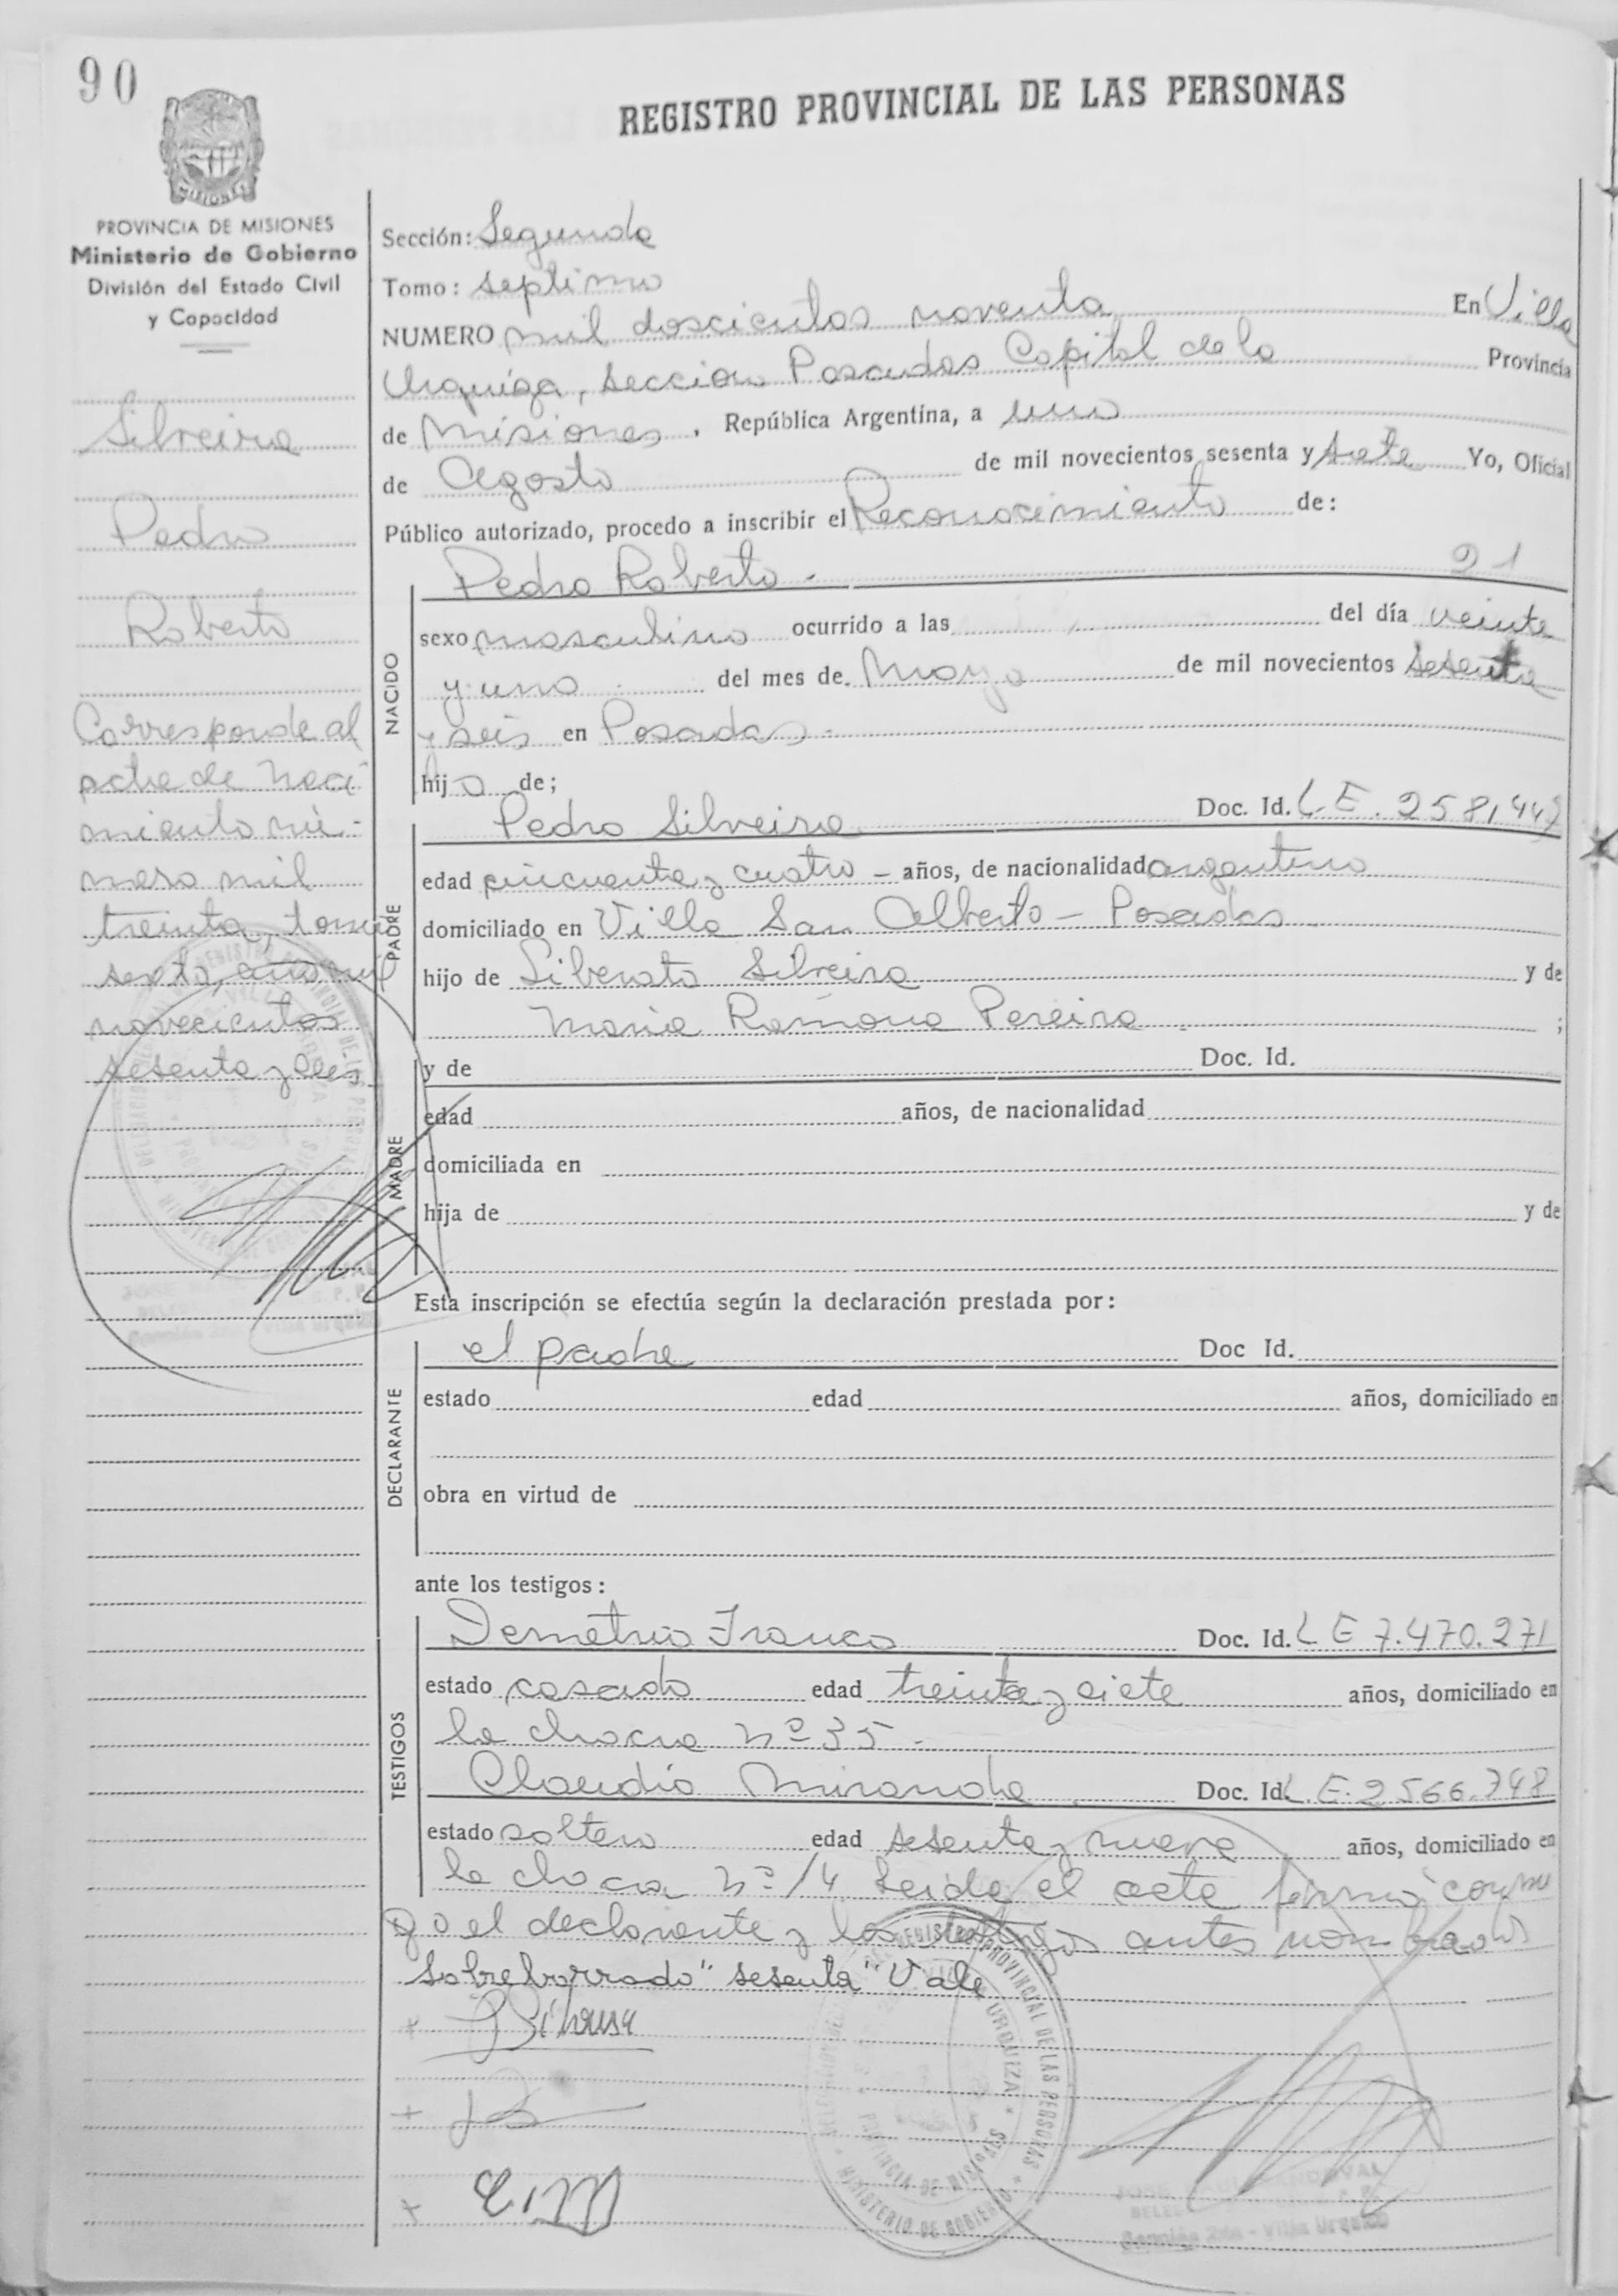 90
REGISTRO PROVINCIAL DE LAS PERSONAS
PROVINCIA DE MISIONES
Ministerio de Gobierno
División del Estado Civil
y Capacidad
Silveira
Pedro
Roberto
Corresponde al
acta de naci
miento nú-
mero mil
treinta, tomo
sexto, año mil
novecientos
sesenta y seis
Sección: Segunda
Tomo: septimo
NUMERO mil doscientos noventa En Villa
Urquiza, seccion Posadas Capital de la Provincia
de Misiones, República Argentina, a uno
de Agosto de mil novecientos sesenta y siete Yo, Oficial
Público autorizado, procedo a inscribir el Reconocimiento de:
NACIDO
Pedro Roberto.- 21
sexo masculino ocurrido a las del día veinte
y uno del mes de Mayo de mil novecientos sesenta
y seis en Posadas.-
hijo de;
PADRE
Pedro Silveira Doc. Id. L E. 2581,447
edad cincuenta y cuatro - años, de nacionalidad argentino
domiciliado en Villa San Alberto - Posadas
hijo de Liberato Silveira y de
Maria Ramona Pereira ;
MADRE
y de Doc. Id.
edad años, de nacionalidad
domiciliada en
hija de y de
Esta inscripción se efectúa según la declaración prestada por:
DECLARANTE
el padre Doc Id.
estado edad años, domiciliado en
obra en virtud de
ante los testigos:
TESTIGOS
Demetrio Franco Doc. Id. L E 7.470.271
estado casado edad treinta y siete años, domiciliado en
la chacra Nº 35.-
Claudio Miranda Doc. Id. L.E. 2566.748
estado soltero edad sesenta y nueve años, domiciliado en
la chacra Nº 14 Leida el acta firmó conmi
go el declarante y los testigos antes nombrados
Sobreborrado "sesenta" Vale
REGISTRO PROVINCIAL DE LAS PERSONAS
URQUIZA
PROVINCIA DE MISIONES
MINISTERIO DE GOBIERNO
SANDOVAL
Sección 2da - Villa Urquiza